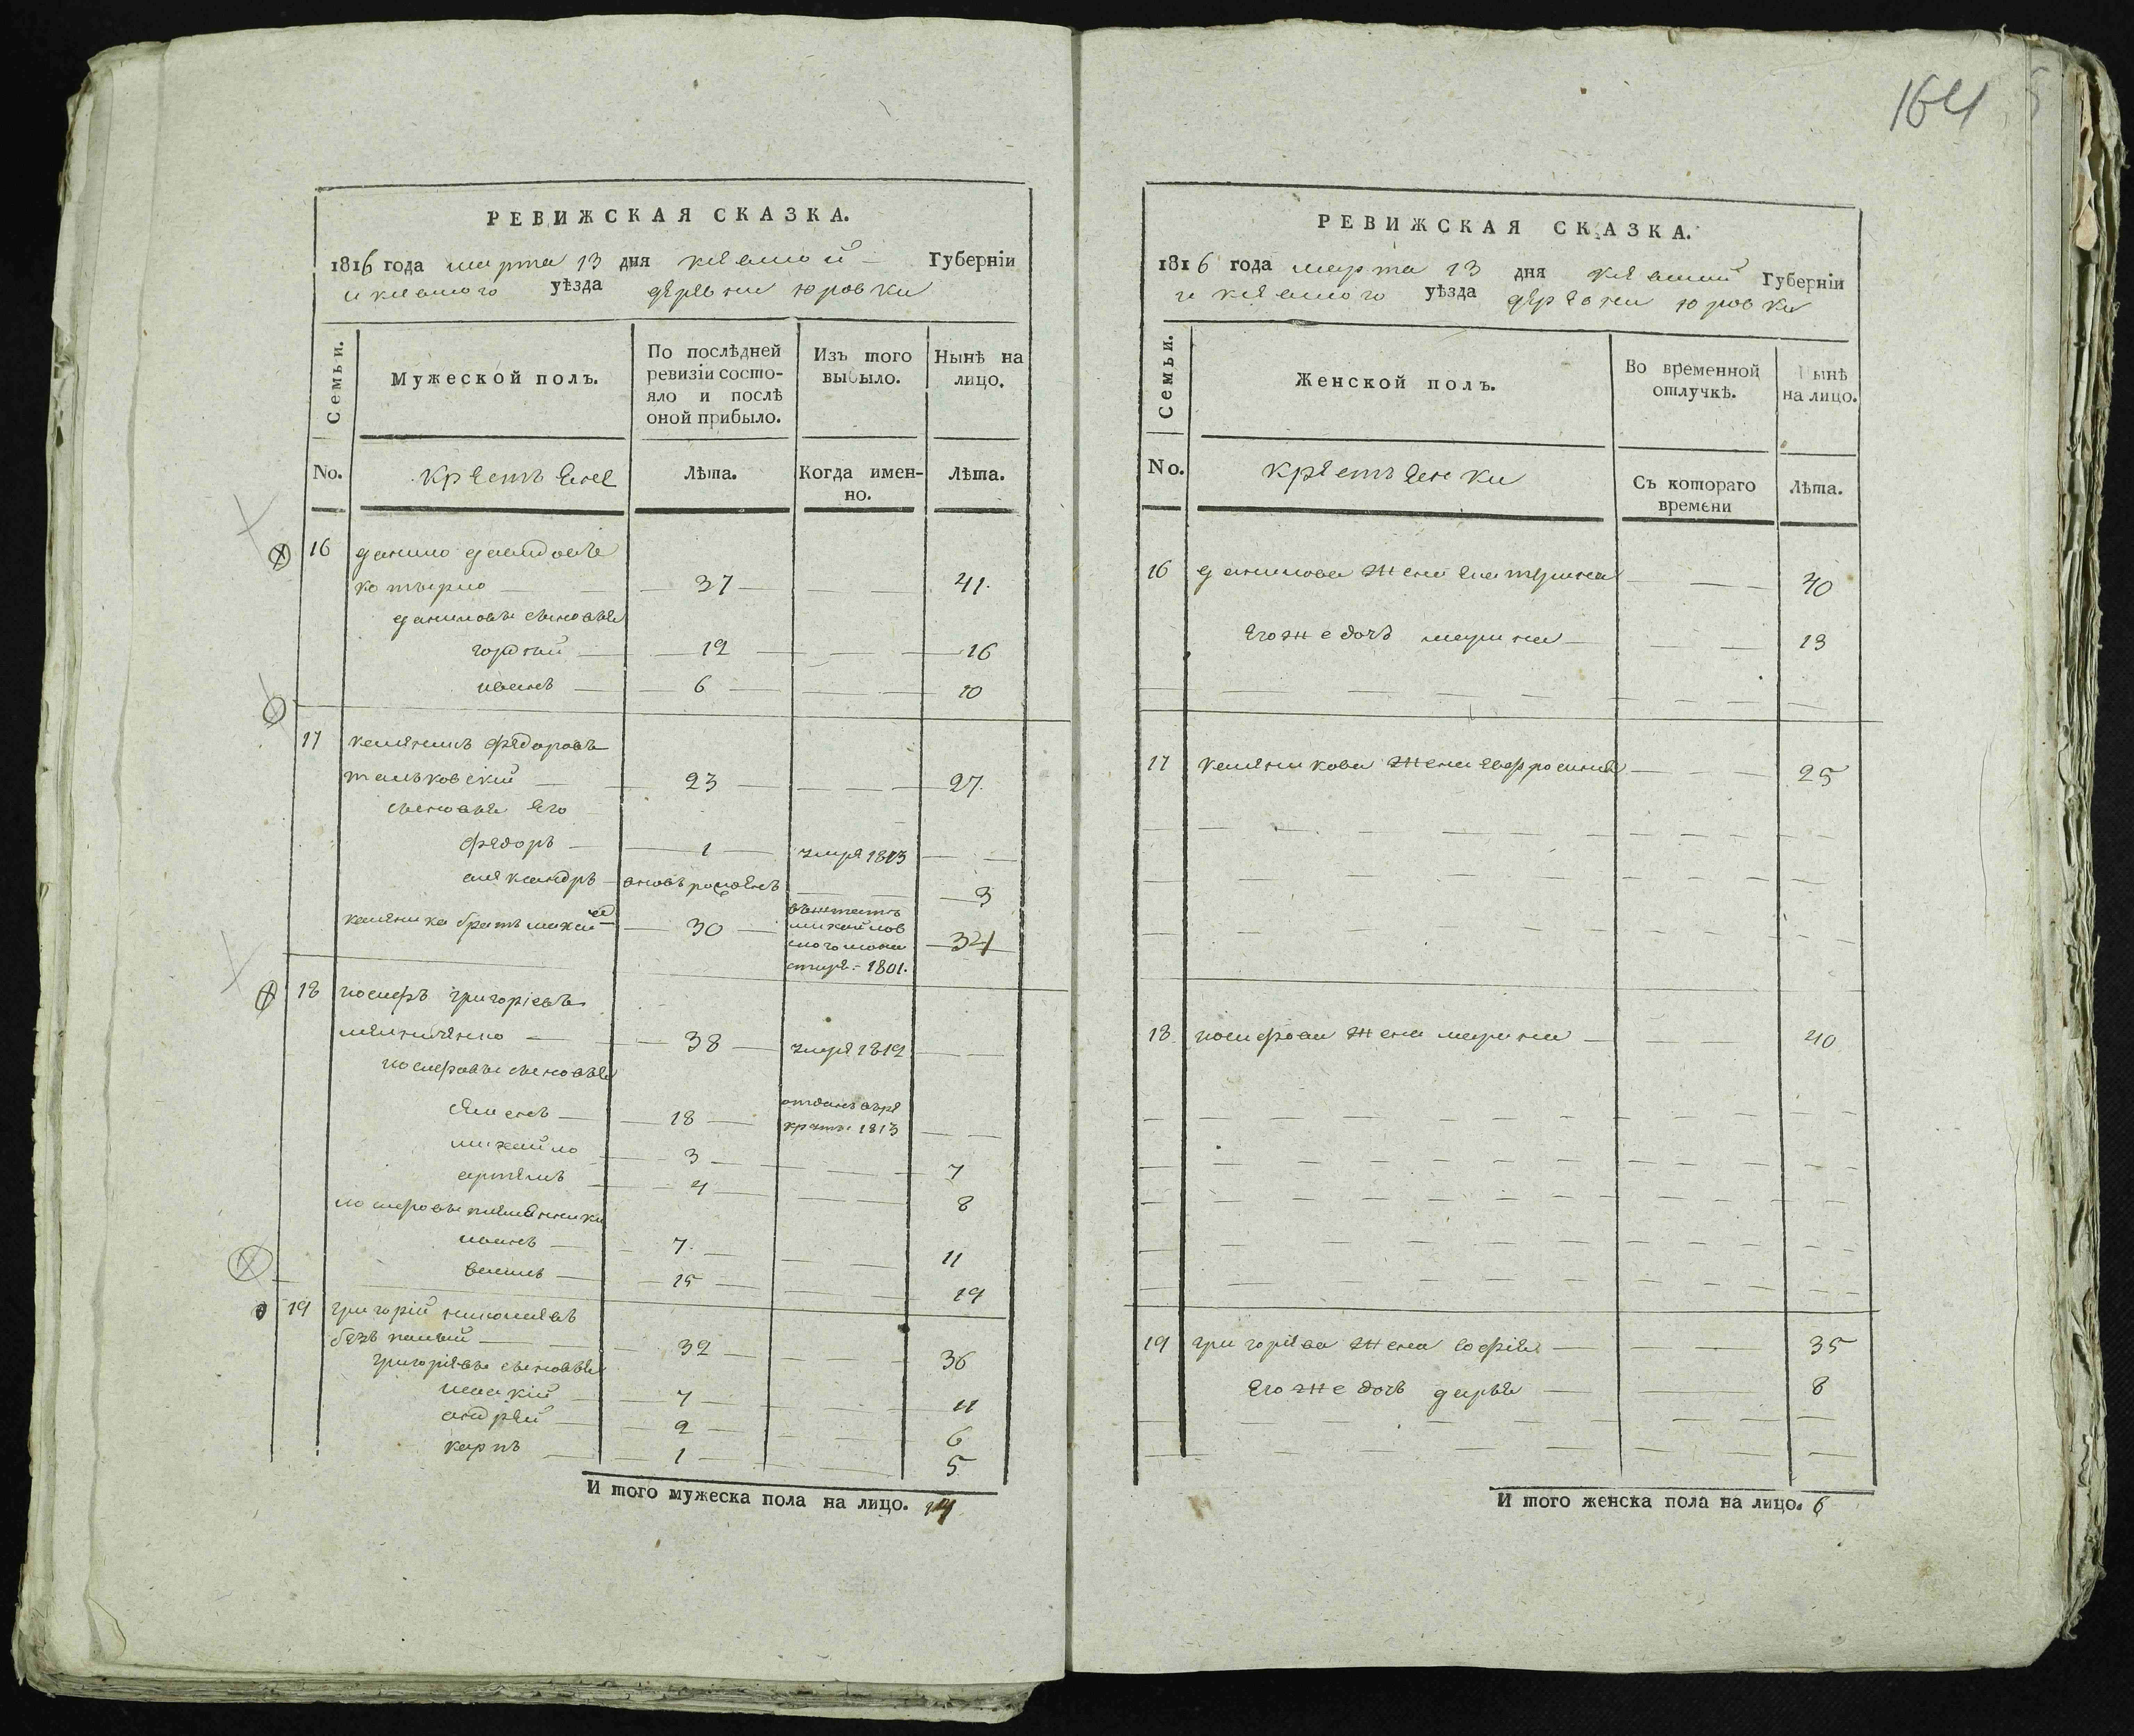 164
РЕВИЖСКАЯ СКАЗКА.
1816 года марта 13 дня киевской Губерніи
и киевского уѣзда деревни юровки
Семьи.
Мужеской полъ.
По послѣдней ревизіи состояло и послѣ оной прибыло.
Изъ того выбыло.
Нынѣ на лицо.
No.
крестьяне
Лѣта.
Когда именно.
Лѣта.
16 данило давидовъ
37 41.
даниловы сыновья
гордѣй 12 16
иванъ 6 10
17 федоровъ
23 27.
сыновья его
федоръ 1 умре 1813
александръ вновь рожденъ 3
братъ 30 михайловского монастыря 1801. 34
18 иосифъ григоріевъ
38 умре 1812
иосифовы сыновья
семенъ 18 отданъ въ рекруты 1813
михайло 3 7
артемъ 4 8
иосифовы племянники
иванъ 7. 11
15 19
19 григорій
безпалый 32 36
григоріевы сыновья
7 11
андрей 2 6
карпъ 1 5
И того мужеска пола на лицо. 14
РЕВИЖСКАЯ СКАЗКА.
1816 года марта 13 дня киевской Губерніи
и киевского уѣзда деревни юровки
Семьи.
Женской полъ.
Во временной отлучкѣ.
Нынѣ на лицо.
No.
крестьянки
Съ котораго времени
Лѣта.
16 данилова жена екатерина 40
его же дочь марина 13
17 жена евфросинія 25
18 иосифова жена марина 40
19 григоріева жена софія 35
его же дочь дарья 8
И того женска пола на лицо. 6